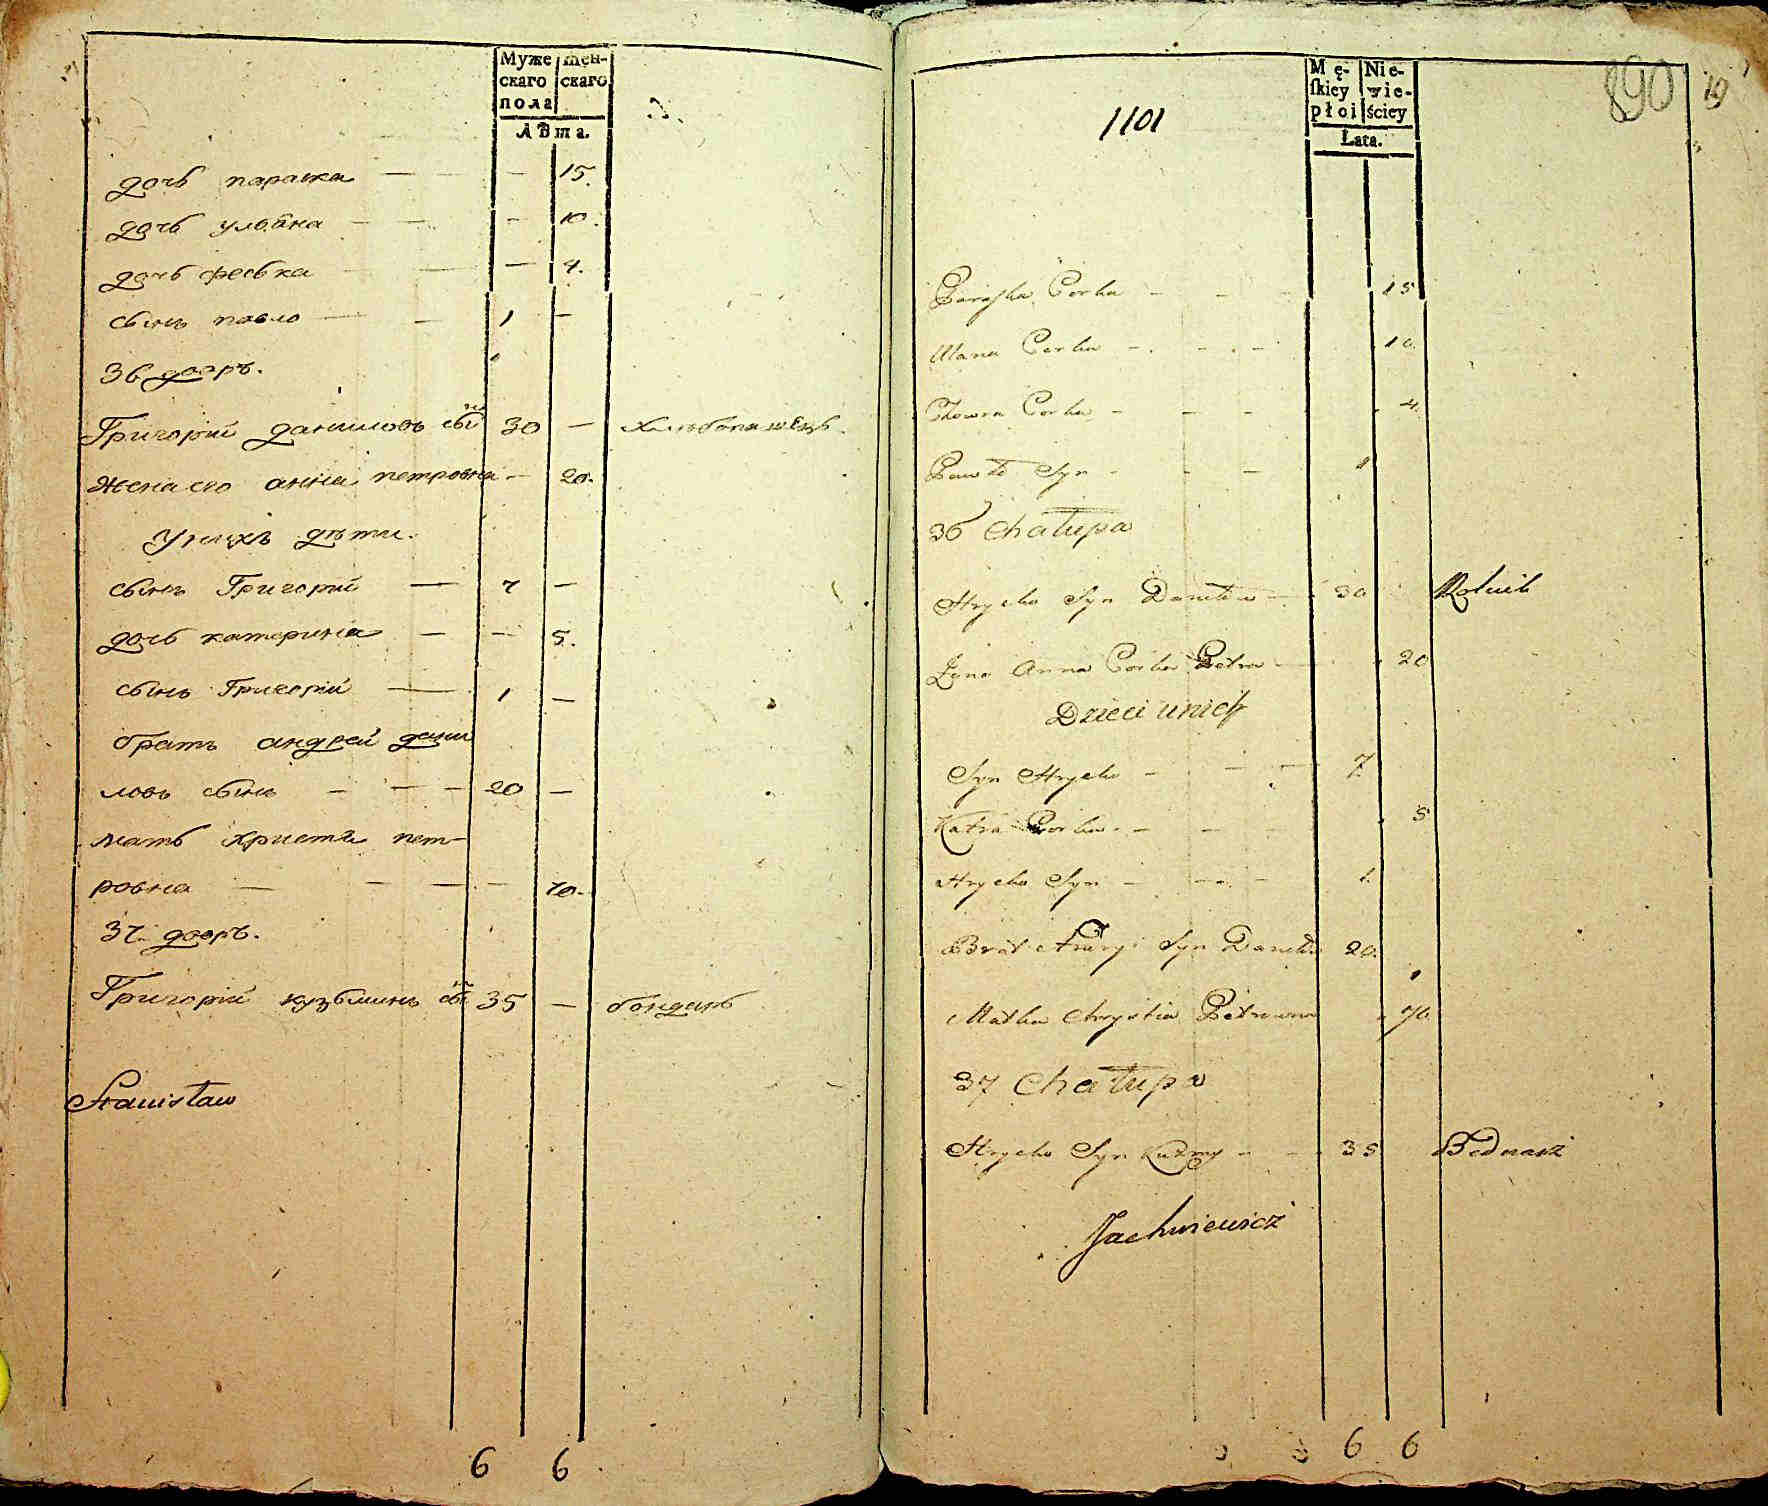 Муже Жен-
скаго скаго
пола
Лѣта.
дочь параска — — — 15.
дочь ульѣна — — — 10.
дочь феська — — — 4.
сынъ павло — — 1 —
36 дворъ.
Григорій даниловъ сынъ 30 — хлѣбопашецъ.
Жена его анна петровна — 20.
У нихъ дѣти.
сынъ Григорій — 7 —
дочь катерина — — 5.
сынъ Григорій — 1 —
братъ андрей дани
ловъ сынъ — — — 20 —
мать христя пет-
ровна — — — — 70.
37 дворъ.
Григорій кузьминъ сынъ 35 — бондарь
Stanisław
6 6
890 19
1101
Mę- Nie-
ſkiey wie-
płoi ściey
Łata.
Paraſka Corka — — — 15
Ulana Corka — . — . — 10.
Corka — — — 4.
Pawło Syn — — — 1
36 Chałupa
Hryćko Syn Daniłow — 30 Rolnik
Żona Anna Corka Petra — 20
Dzieci unich
Syn Hryćko — — — 7.
Katra Corka . — — — 5
Hryćko Syn — — . — 1.
Brat Andryi Syn Daniłow 20.
Matka Chrystia Petrowna 70.
37 Chałupa
Hryćko Syn Kuźmy — — 35 Bednarz
Jachniewicz
6 6